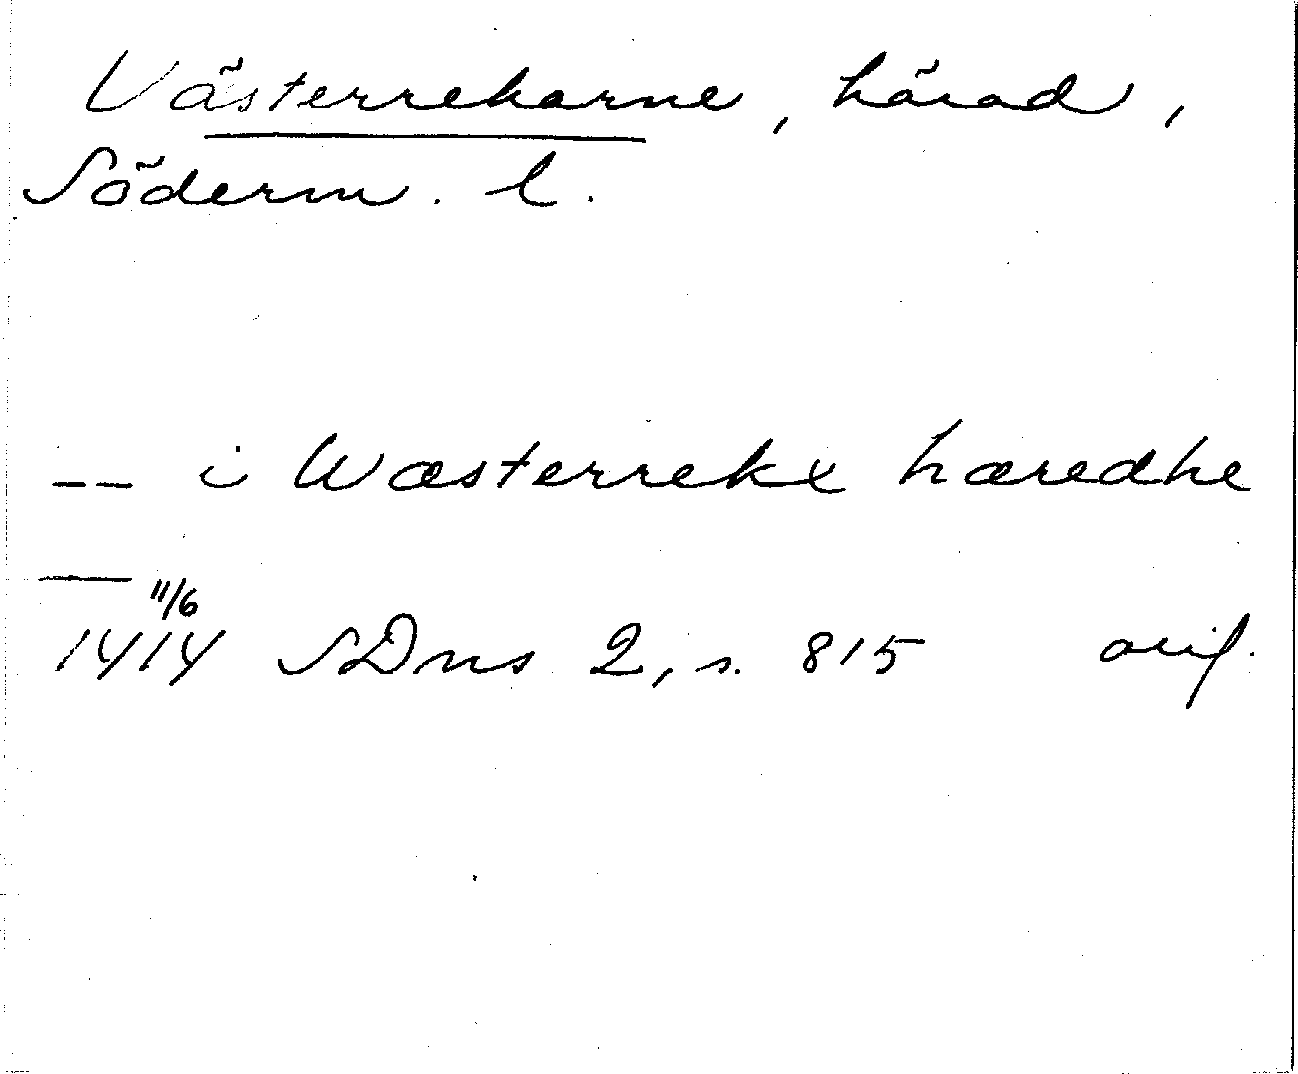 Västerrekarne, härad,
Söderm. l.
-- i Wæsterreke hæredhe
—
11/6
1414 SDns 2, s. 815 orig.